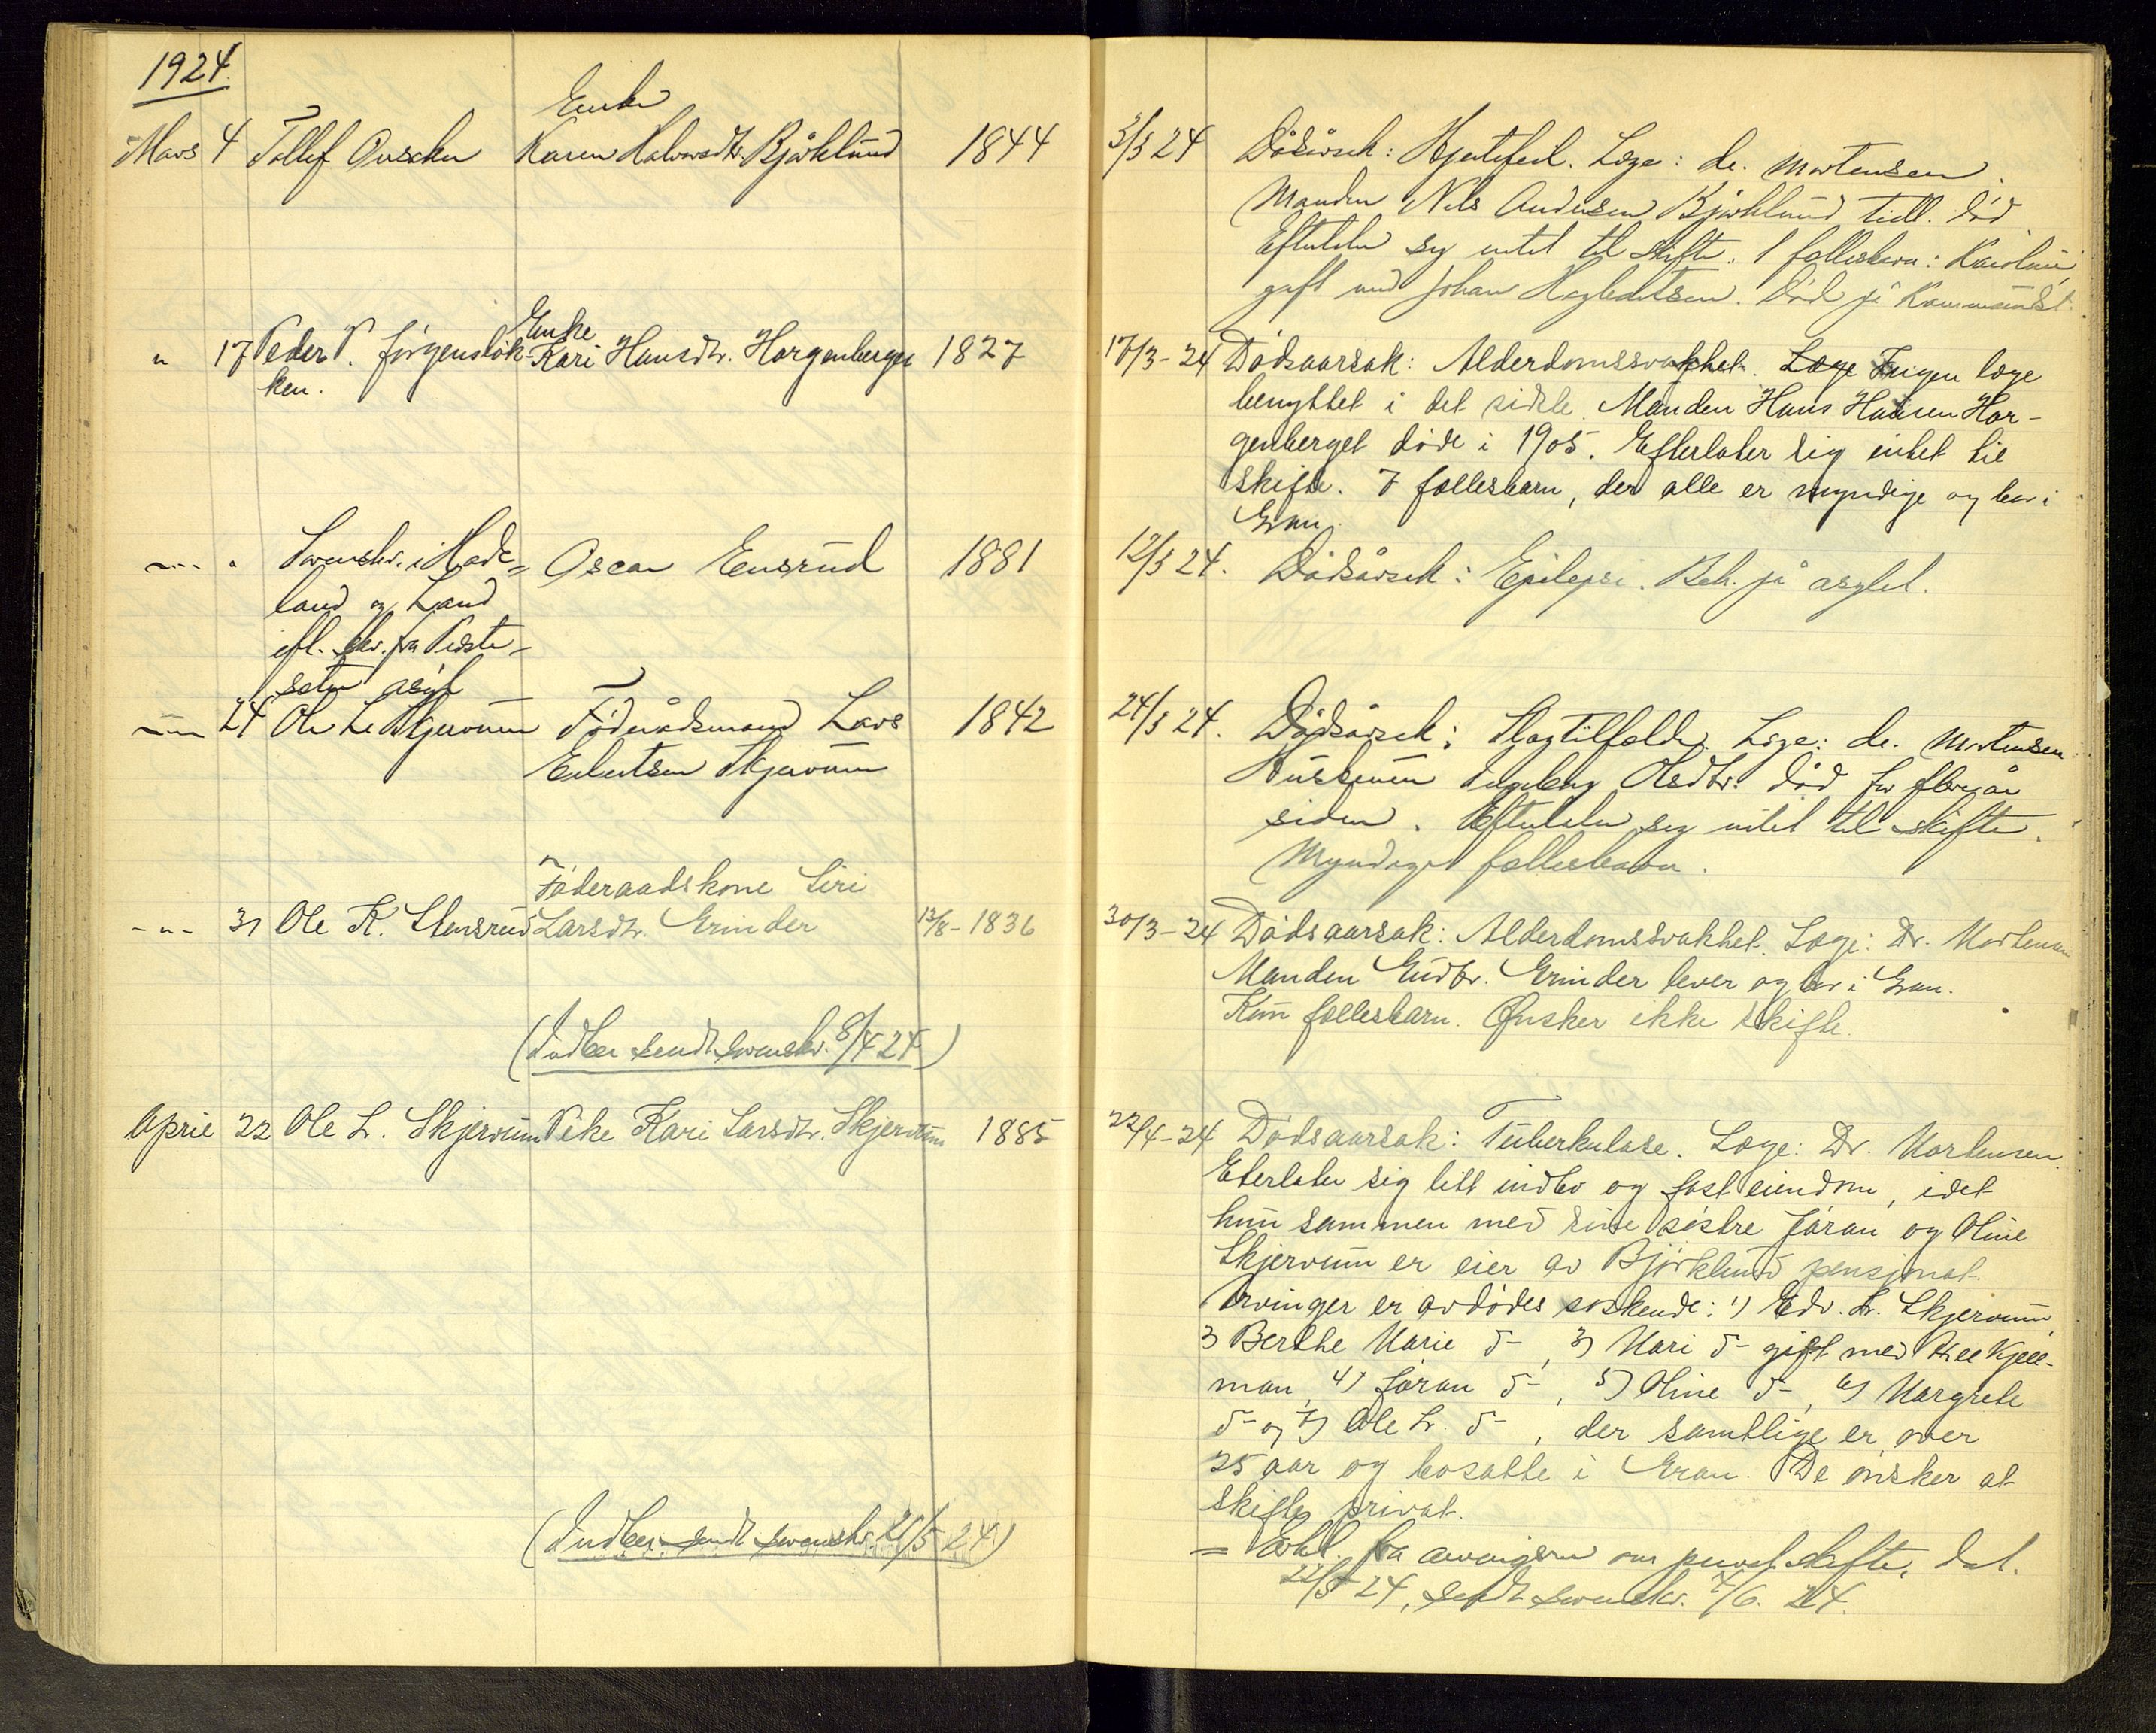 1924.
Enke
Mars 4 Tollef Karen Halvorsdtr. Björklund 1844
3/3 24 Dödsårsak: Hjertefeil. Læge: dr. Mortensen.
Manden Nils Andersen Björklund tidl. död
Efterlater sig intet til skifte. 1 fællesbarn: Karoline,
gift med Johan Död på
Enke
" 17 Peder P. Jörgenslök- Kari Hansdtr. Horgenberget 1827
ken.
17/3-24 Dödsaarsak: Alderdomssvakhet. Læge Ingen læge
benyttet i det sidste. Manden Hans Hansen Hor-
genberget döde i 1905. Efterlater sig intet til
skifte. 7 fællesbarn, der alle er myndige og bor i
Gran.
-"- " Sorenskr. i Hade- Oscar Ensrud 1881
land og Land
efl. skr. fra
asyl
12/3 24. Dödsårsak: Epilepsi. Beh. på asylet.
-"- 24 Ole L. Skjervum Föderådsmand Lars 1842
Skjervum
24/3 24. Dödsårsak: Slagtilfælde. Læge: dr. Mortensen
Hustruen Ingeborg Olsdtr. död for flere år
siden. Efterlater sig intet til skifte.
Myndige fællesbarn.
Föderaadskone Siri
-"- 31 Ole K. Stensrud Larsdtr. Grinder 13/8-1836
30/3-24 Dödsaarsak: Alderdomssvakhet. Læge: Dr. Mortensen
Manden Gudbr. Grinder lever og bor i Gran.
Kun fællesbarn. Ønsker ikke skifte.
(Indber sendt sorenskr. 8/4 24)
April 22 Ole L. Skjervum Pike Kari Larsdtr. Skjervum 1885
22/4-24 Dödsaarsak: Tuberkulose. Læge: Dr. Mortensen.
Eterlater sig litt indbo og fast eiendom, idet
hun sammen med sine söstre Jöran og Oline
Skjervum er eier av Björklund pensjonat.
Arvinger er avdödes söskende: 1) Edv. L. Skjervum,
2) Berthe Marie d-, 3) Mari d- gift med Kjell-
man, 4) Jöran d-, 5) Oline d-, 6) Margrete
d- og 7) Ole L. d-, der samtlige er over
25 aar og bosatte i Gran. De önsker at
skifte privat.
(Indber sendt sorenskr. 21/5 24)
= Erkl. fra arvingene om privat skifte, dat.
22/5 24, sendt sorenskr. 4/6. 24.